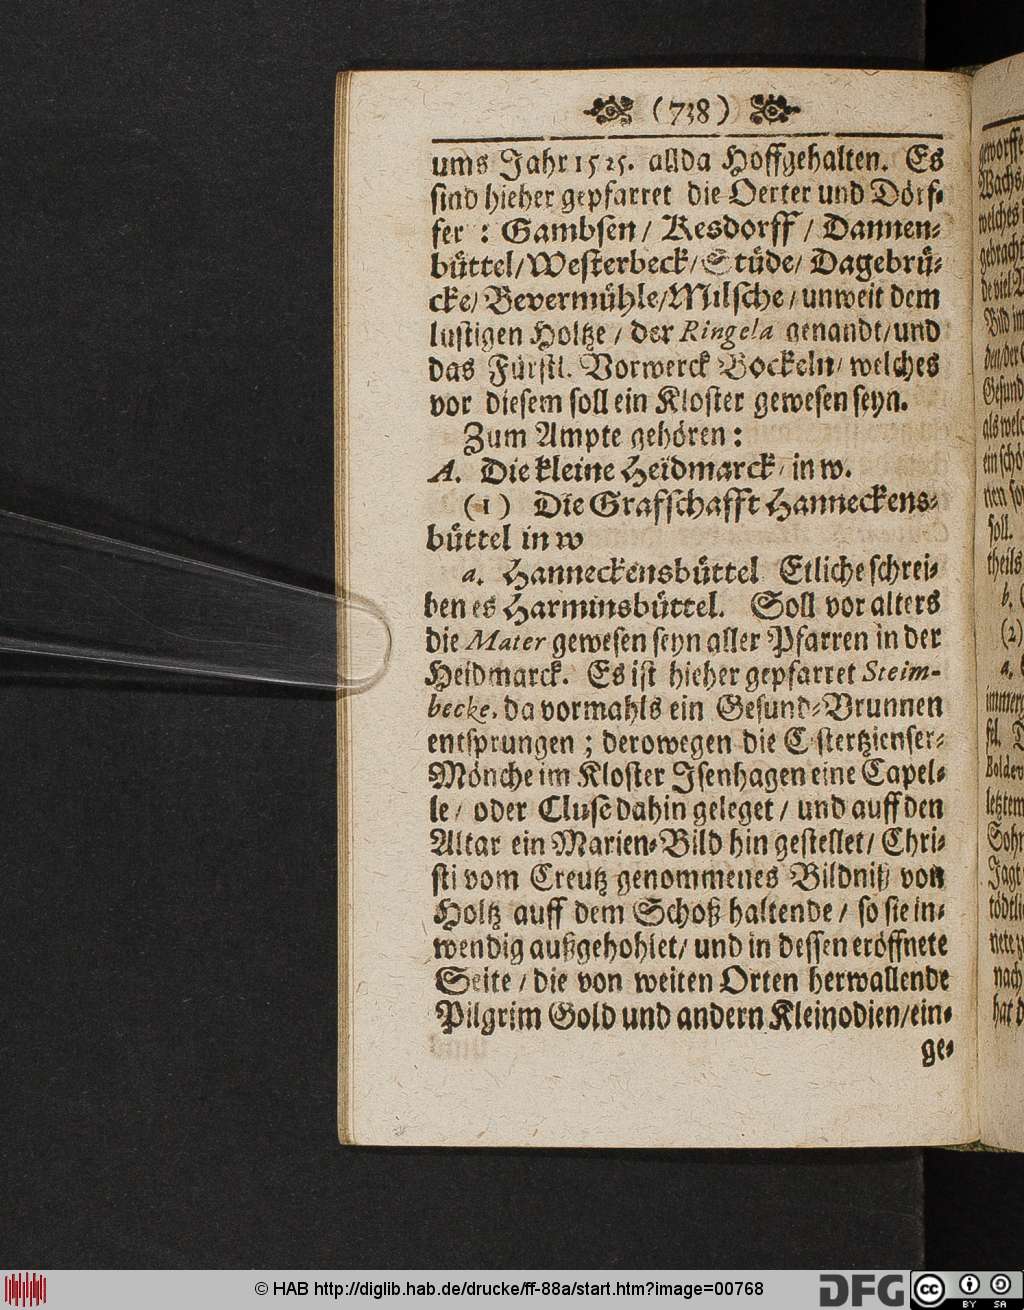 (738)
ums Jahr 1525. allda Hoffgehalten. Es
sind hieher gepfarret die Oerter und Dörf-
fer : Gambsen / Resdorff / Dannen-
büttel / Westerbeck / Stüde / Dagebrü-
cke / Bevermühle / Milsche / unweit dem
lustigen Holtze / der Ringela genandt / und
das Fürstl. Vorwerck Bockeln / welches
vor diesem soll ein Kloster gewesen seyn.
Zum Ampte gehören :
A. Die kleine Heidmarck / in w.
(1) Die Grafschafft Hanneckens-
büttel in w
a. Hanneckensbüttel Etliche schrei-
ben es Harminsbüttel. Soll vor alters
die Mater gewesen seyn aller Pfarren in der
Heidmarck. Es ist hieher gepfarret Steim-
becke, da vormahls ein Gesund-Brunnen
entsprungen ; derowegen die Cistertzienser-
Mönche im Kloster Isenhagen eine Capel-
le / oder Cluse dahin geleget / und auff den
Altar ein Marien-Bild hin gestellet / Chri-
sti vom Creutz genommenes Bildniß von
Holtz auff dem Schoß haltende / so sie in-
wendig außgehohlet / und in dessen eröffnete
Seite / die von weiten Orten herwallende
Pilgrim Gold und andern Kleinodien / ein-
ge-
© HAB http://diglib.hab.de/drucke/ff-88a/start.htm?image=00768
DFG
cc
BY SA